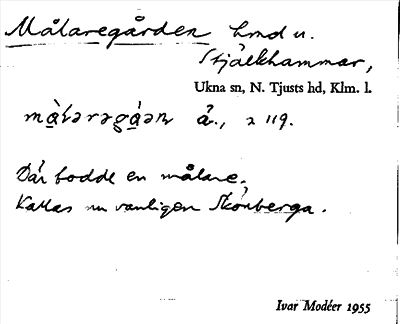 Målaregården hmd u.
Stjälkhammar,
Ukna sn, N. Tjusts hd, Klm. l.
å., 2 119.
Där bodde en målare.
Kallas nu vanligen Skönberga.
Ivar Modéer 1955